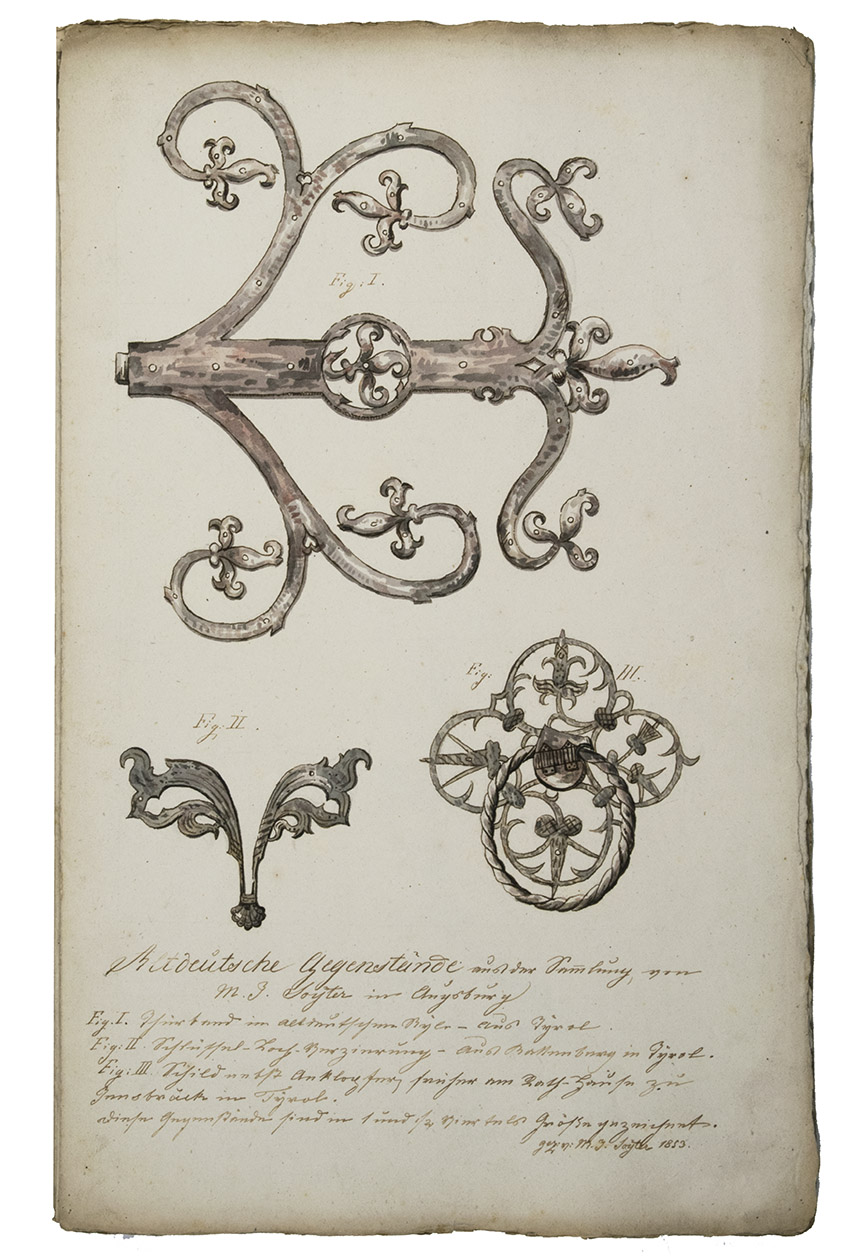 Fig: I.
Fig: III.
Fig: II
Altdeutsche Gegenstände aus der Samlung, von
M. J. Soyter in Augsburg
Fig. I. Thürband im altdeutschen Style - aus Tyrol.
Fig: II. Schlüssel-Loch-Verzierung - aus Rattenberg in Tyrol.
Fig: III. Schild nebst Anklopfer, früher am Rath-Hause zu
Innsbruck in Tyrol.
Diese Gegenstände sind in 1 und 1/2 Viertels Größe gezeichnet.
gez. v: M. J. Soyter 1853.